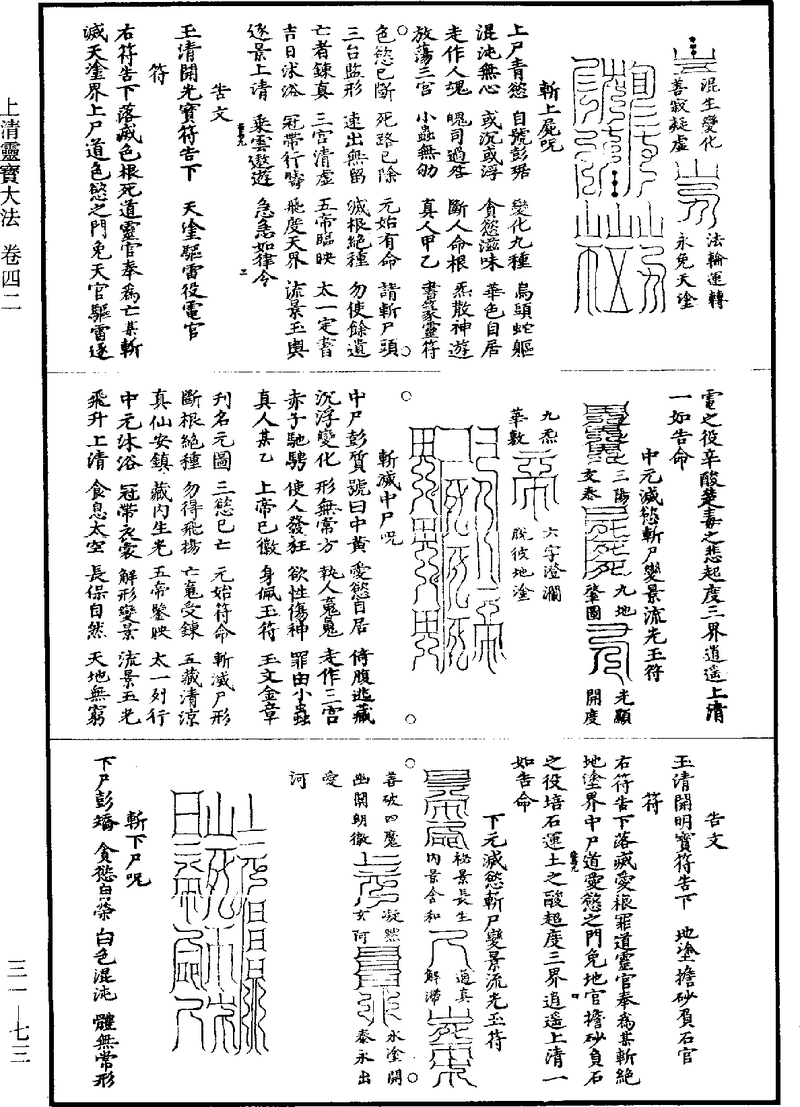 上清靈寶大法 卷四二
三一—七三
混生變化
善寂凝虛
法輪運轉
永免天塗
斬上屍呪
上尸青慾 自號彭琚 變化九種 鳥頭蛇軀
混沌無心 或沉或浮 貪慾滋味 華色自居
走作人魂 魄司過咎 斷人命根 炁散神遊
放蕩三宮 小蟲無劬 真人甲乙 書篆靈符
色慾已斷 死路已除 元始有命 請斬尸頭
三台監形 速出無留 滅根絕種 勿使餘遺
亡者鍊真 三宮清虛 五帝臨映 太一定書
吉日沐浴 冠帶行疇 飛度天界 流景玉輿
逐景上清 乘雲遨遊 急急如律令
告文
玉清開光寶符告下 天塗驅雷役電官
符
右符告下落滅色根死道靈官奉為亡某斬
滅天塗界上尸道色慾之門免天官驅雷逐
電之役辛酸楚毒之悲超度三界逍遥上清
一如告命
中元滅慾斬尸變景流光玉符
三陽
文泰
九地
肇圖
光顯
開度
九炁
華敷
六字澄瀾
脫彼地塗
斬滅中尸呪
中尸彭質 號曰中黃 愛慾自居 倚腹逃藏
沉浮變化 形無常方 執人魂魄 走作三宮
赤子馳騁 使人發狂 欲性傷神 罪由小蟲
真人某乙 上帝已徵 身佩玉符 玉文金章
刊名元圖 三慾已亡 元始符命 斬滅尸形
斷根絕種 勿得飛揚 亡魂受鍊 五藏清涼
真仙安鎮 藏內生光 五帝鑒映 太一列行
中元沐浴 冠帶衣裳 解形變景 流景玉光
飛升上清 食息太空 長保自然 天地無窮
告文
玉清開明寶符告下 地塗擔砂負石官
符
右符告下落滅愛根罪道靈官奉為某斬絕
地塗界中尸道愛慾之門免地官擔砂負石
之役培石運土之酸超度三界逍遥上清一
如告命
下元滅慾斬尸變景流光玉符
祕景長生
內景含和
適真
解滯
善破四魔
幽關朗徹
凝然
女河
永塗開
泰永出
愛
河
斬下尸呪
下尸彭矯 貪慾自榮 白色混沌 體無常形